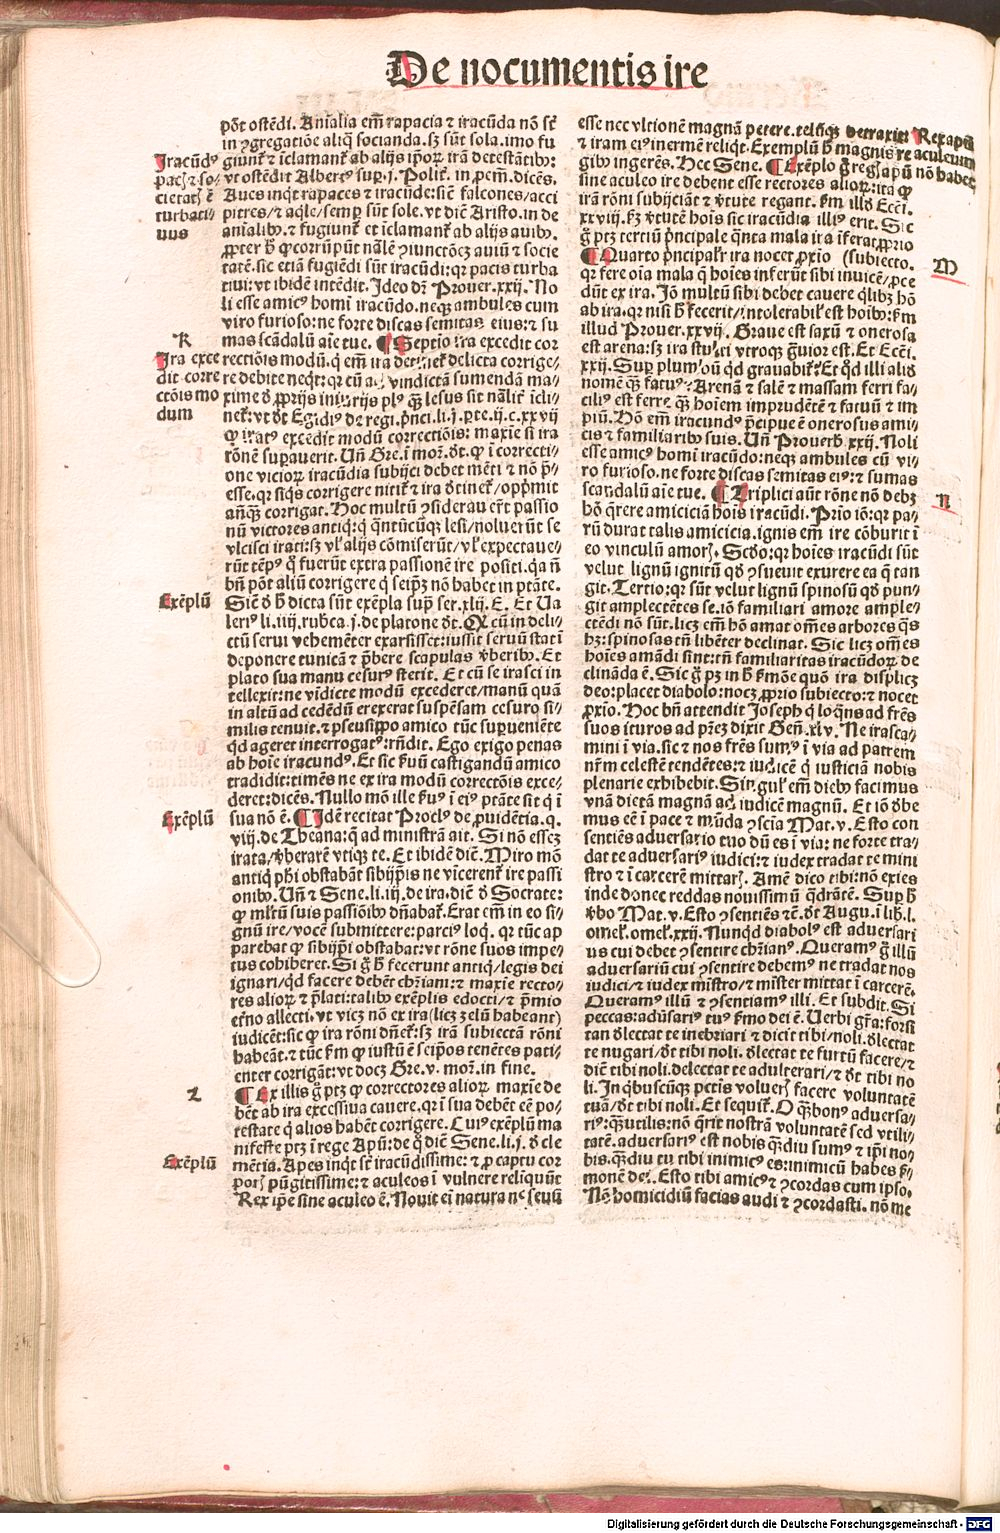 De nocumentis ire
pōt ostēdi. Aniālia em̄ rapacia ⁊ iracūda nō st̄
in ꝯgregatiōe aliq̄ socianda. sꝫ sūt sola. imo fu
giunt̄ ⁊ īclamant̄ ab alijs ip̄oꝝ irā detestātibꝰ:
vt ostēdit Albertꝰ suꝑ .j. Polit̄. in ꝓem̄. dicēs.
Aues inq̄t rapaces ⁊ iracūde: sic̄ falcones/ acci
pitres/ ⁊ aq̄le/ semꝑ sūt sole. vt dic̄ Aristo. in de
aniālibꝰ. ⁊ fugiunt̄ et īclamant̄ ab alijs auibꝰ.
ꝓpter h̄ ꝙ corrūpūt nālē ꝯiunctōeꝫ auiū ⁊ socie
tatē. sic etiā fugiēdi sūt iracūdi: qꝛ pacis turba
tiui: vt ibidē intēdit. Ideo dr̄ Prouer. xxij. No
li esse amicꝰ homī iracūdo. neqꝫ ambules cum
viro furioso: ne forte discas semitas eius: ⁊ su
mas scādalū aīe tue. ¶ Septīo ira excedit cor
rectiōis modū. q̄ em̄ ira delicta corrige/
re debite neqt̄: qꝛ cū ad vindictā sumendā ma/
xime d̄ ꝓprijs iniurijs plꝰ qꝫ lesus sit nālit̄ īcli/
net̄: vt dt̄ Egidiꝰ de regi. pn̄ci. li. j. ꝑte. ij. c. xxvij
ꝙ iratꝰ excedit modū correctiōis: maxīe si ira
rōnē suꝑauerit. Vn̄ Gre. ī mor. dt̄. ꝙ ī correcti/
one vicioꝝ iracūdia subijci debet mēti ⁊ nō p̄/
esse. qꝛ siqs̄ corrigere nitit̄ ⁊ ira d̄tinet̄/ opp̄mit
an̄qꝫ corrigat. Hoc multū ꝯsiderau er̄t passio
nū victores antiq̄: q̄ quātūcūqꝫ lesi/ noluer ūt se
vlcisci irati: sꝫ vl̄ alijs cōmiserūt/ vl̄ expectaue/
rūt tēpꝰ q̄ fuerūt extra passionē ire positi. q̄a n̄
bn̄ pōt aliū corrigere q̄ seip̄ꝫ nō habet in ptāte.
Sic̄ d̄ h̄ dicta sūt exēpla supͣ ser. xlij. E. Et Ua
leriꝰ li. iiij. rubca .j. de platone dt̄. Qꝫ cū in deli/
ctū serui vehemēter exarsisset: iussit seruū statī
deponere tunicā ⁊ p̄bere scapulas v̄beribꝰ. Et
plato sua manu cesurꝰ stetit. Et cū se irasci in
tellexit: ne vīdicte modū excederet/ manū quā
in altū ad cedēdū erexerat suspēsam cesuro si/
milis tenuit. ⁊ pseusippo amico tūc suꝑueniēte
qd̄ ageret interrogatꝰ: rn̄dit. Ego exigo penas
ab hoīe iracundꝰ. Et sic ẜuū castigandū amico
tradidit: timēs ne ex ira modū correctōis exce/
deret: dicēs. Nullo mō ille ẜuꝰ ī eiꝰ ptāte sit q̄ ī
sua nō ē. ¶ Idē recitat Proclꝰ de ꝓuidētia. q.
viij. de Theana: q̄ ad ministrā ait. Si nō esseꝫ
irata/ v̄berarē vtiqꝫ te. Et ibidē dic̄. Miro mō
antiq̄ phi obstabāt sibijp̄is ne vīcerent̄ ire passi
onibꝰ. Vn̄ ⁊ Sene. li. iij. de ira. dic̄ d̄ Socrate:
ꝙ ml̄tū suis passiōibꝰ dn̄abat̄. Erat em̄ in eo si/
gnū ire/ vocē submittere: parciꝰ loq̄. qꝛ tūc ap
parebat ꝙ sibijp̄i obstabat: vt rōne suos impe/
tus cohiberet. Si g̊ h̄ fecerunt antiq̄/ legis dei
ignari/ qd̄ facere debēt chr̄iani: ⁊ maxīe recto/
res alioꝝ ⁊ p̄lati: talibꝰ exēplis edocti/ ⁊ p̄mio
et̄no allecti. vt vicꝫ nō ex ira (licꝫ ꝫelū habeant)
iudicēt: sic ꝙ ira rōni dn̄et̄: sꝫ irā subiectā rōni
habeāt. ⁊ tūc ẜm ꝙ iustū ē seip̄os tenētes pati/
enter corrigāt: vt docꝫ Gre. v. mor. in fine.
¶ Ex illis g̊ ptꝫ ꝙ correctores alioꝝ maxīe de
bēt ab ira excessiua cauere. qꝛ ī sua debēt cē po/
testate q̄ alios habēt corrigere. Cuiꝰ exēplū ma
nifeste ptꝫ ī rege Apū: de q̊ dic̄ Sene. li. j. d̄ cle
mētia. Apes inqt̄ sc̄ iracūdissime: ⁊ ꝓ captu cor
poris pūgitissime: ⁊ aculeos ī vulnere relīquūt
Rex ip̄e sine aculeo ē. Nouit eī natura ne seuū
Iracūdꝰ
pacis ⁊ so/
cietatis ē
turbati/
uus
K
Ira exce
dit corre
ctōis mo
dum
Exēplū
Exēplū
L
Exēplū
esse nec vltionē magnā petere. telūqꝫ detraxit:
⁊ iram eiꝰ inermē reliqt̄. Exemplū h̄ magnis re
gibꝰ ingerēs. Hec Sene. ¶ Exēplo g̊ regis apū
sine aculeo ire debent esse rectores alioꝝ: ita ꝙ
irā rōni subijciāt ⁊ v̄tute regant. ẜm illō Ecc̄i.
xxviij. ẜꝫ v̄tutē hoīs sic iracūdia illiꝰ erit. Sic
g̊ ptꝫ tertiū pn̄cipale qn̄ta mala ira īferat ꝓprio
¶ Quarto pn̄cipalr̄ ira nocet ꝓxīo (subiecto.
qꝛ fere oīa mala q̄ hoīes inferūt sibi inuicē/ ꝓce
dūt ex ira. Iō multū sibi debet cauere q̄libꝫ hō
ab ira. qꝛ nisi h̄ fecerit/ intolerabil̄ est hoībꝰ: ẜm
illud Prouer. xxvij. Graue est saxū ⁊ onerosa
est arena: sꝫ ira stulti vtroqꝫ g̊uior est. Et Ecc̄i.
xxij. Suꝑ plumꝰ/ oū qd̄ grauabit̄? Et qd̄ illi aliō
nomē qꝫ fatuꝰ? Arenā ⁊ salē ⁊ massam ferri fa/
ciliꝰ est ferre qꝫ hoīem imprudētē ⁊ fatuū ⁊ im
piū. Hō em̄ iracundꝰ p̄cipue ē onerosus ami/
cis ⁊ familiaribꝰ suis. Vn̄ Prouerb. xxij. Noli
esse amicꝰ homī iracūdo: neqꝫ ambules cū vi/
ro furioso. ne forte discas semitas eiꝰ: ⁊ sumas
scandalū aīe tue. ¶ Triplici aūt rōne nō debꝫ
hō q̄rere amiciciā hoīs iracūdi. Prīo iō: qꝛ pa/
rū durat talis amicicia. ignis em̄ ire cōburit ī
eo vinculū amoris. Scd̊o: qꝛ hoīes iracūdi sūt
velut lignū ignitū qd̊ ꝯsueuit exurere ea q̄ tan
git. Tertio: qꝛ sūt velut lignū spinosū qd̊ pun/
git amplectētes se. iō familiari amore ample/
ctēdi nō sūt. licꝫ em̄ hō amat om̄es arbores q̄s
hꝫ: spinosas tn̄ libēter declinat. Sic licꝫ om̄es
hoīes amādi sint: tn̄ familiaritas iracūdoꝝ de
clināda ē. Sic g̊ ptꝫ in h̄ ẜmōe quō ira displicꝫ
deo: placet diabolo: nocꝫ ꝓprio subiecto: ⁊ nocet
ꝓxīo. Hoc bn̄ attendit Joseph q̄ loqn̄s ad fr̄es
suos ituros ad pr̄eꝫ dixit Gen̄. xlv. Ne irasca/
mini ī via. sic ⁊ nos fr̄es sumꝰ ī via ad patrem
nr̄m celestē tendētes: ⁊ iudicē q̄ iusticiā nobis
plenarie exhibebit. Singul̄ em̄ diebꝰ facimus
vnā dietā magnā ad iudicē magnū. Et iō d̄be
mus eē ī pace ⁊ mūda ꝯsciā Mat. v. Esto con
sentiēs aduersario tuo dū es ī via: ne forte tra/
dat te aduersariꝰ iudici: ⁊ iudex tradat te mini
stro ⁊ ī carcerē mittaris. Amē dico tibi: nō exies
inde donec reddas nouissimū q̄drātē. Suꝑ h̄
v̄bo Mat. v. Esto ꝯsentiēs ⁊c̄. dt̄ Augu. ī lib. l.
omel̄. omel̄. xxij. Nunqd̄ diabolꝰ est aduersari
us cui debet ꝯsentire chr̄ianꝰ. Queramꝰ g̊ illū
aduersariū cui ꝯsentire debemꝰ ne tradat nos
iudici/ ⁊ iudex mīstro/ ⁊ mīster mittat ī carcerē.
Queramꝰ illū ⁊ ꝯsentiamꝰ illi. Et subdit. Si
peccas: adūsariꝰ tuꝰ ẜmo dei ē. Uerbi gr̄a: forsi
tan d̄lectat te inebriari ⁊ dicit tibi/ noli. d̄lectat
te nugari/ dt̄ tibi noli. d̄lectat te furtū facere/ ⁊
dic̄ tibi noli. delectat te adulterari/ ⁊ dt̄ tibi no
li. In q̄buscūqꝫ pctīs volueris facere voluntatē
tuā/ dt̄ tibi noli. Et sequit̄. O qꝫ bonꝰ aduersa/
riꝰ: qꝫ vtilis: nō q̄rit nostrā voluntatē sed vtili/
tatē. aduersariꝰ est nobis qꝫdiu sumꝰ ⁊ ip̄i no/
bis. qꝫdiu tu tibi inimicꝰ es: inimicū habes ẜ/
monē dei. Esto tibi amicꝰ ⁊ ꝯcordas cum ipso.
Nō homicidiū facias audi ⁊ ꝯcordasti. nō me
Rex apū
aculeum
nō habet
M
N
Digitalisierung gefördert durch die Deutsche Forschungsgemeinschaft - DFG